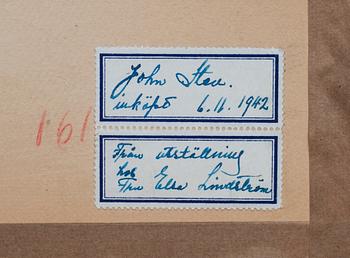 John Sten.
inköpt 6.11.1942
161
Från utställning
hos
Fru Elsa Lindström